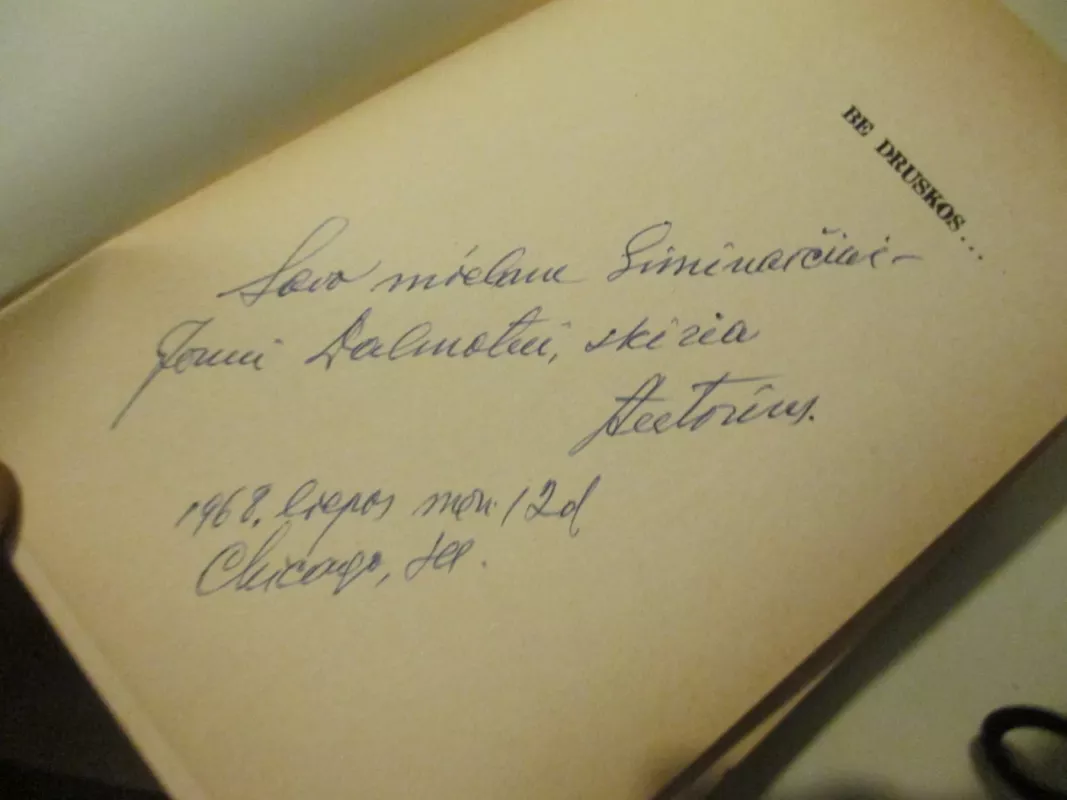 BE DRUSKOS...
Savo mielam Giminaičiui-
Jonui Dalmotui, skiria
Autorius.
1968. liepos mėn. 12d
Chicago, Ill.